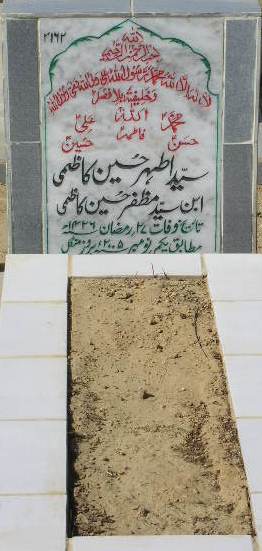 ۲۱۶۲
بسم اللہ الرحمن الرحیم
لا الہ الا اللہ محمد رسول اللہ علی ولی اللہ وصی رسول اللہ
و خلیفتہ بلا فصل
محمدؐ علیؑ
حسنؑ فاطمہؑ حسینؑ
سید اطہر حسین کاظمی
ابن سید مظفر حسین کاظمی
تاریخ وفات ۲۷ رمضان ۱۴۲۶ھ
مطابق یکم نومبر ۲۰۰۵ء بروز منگل